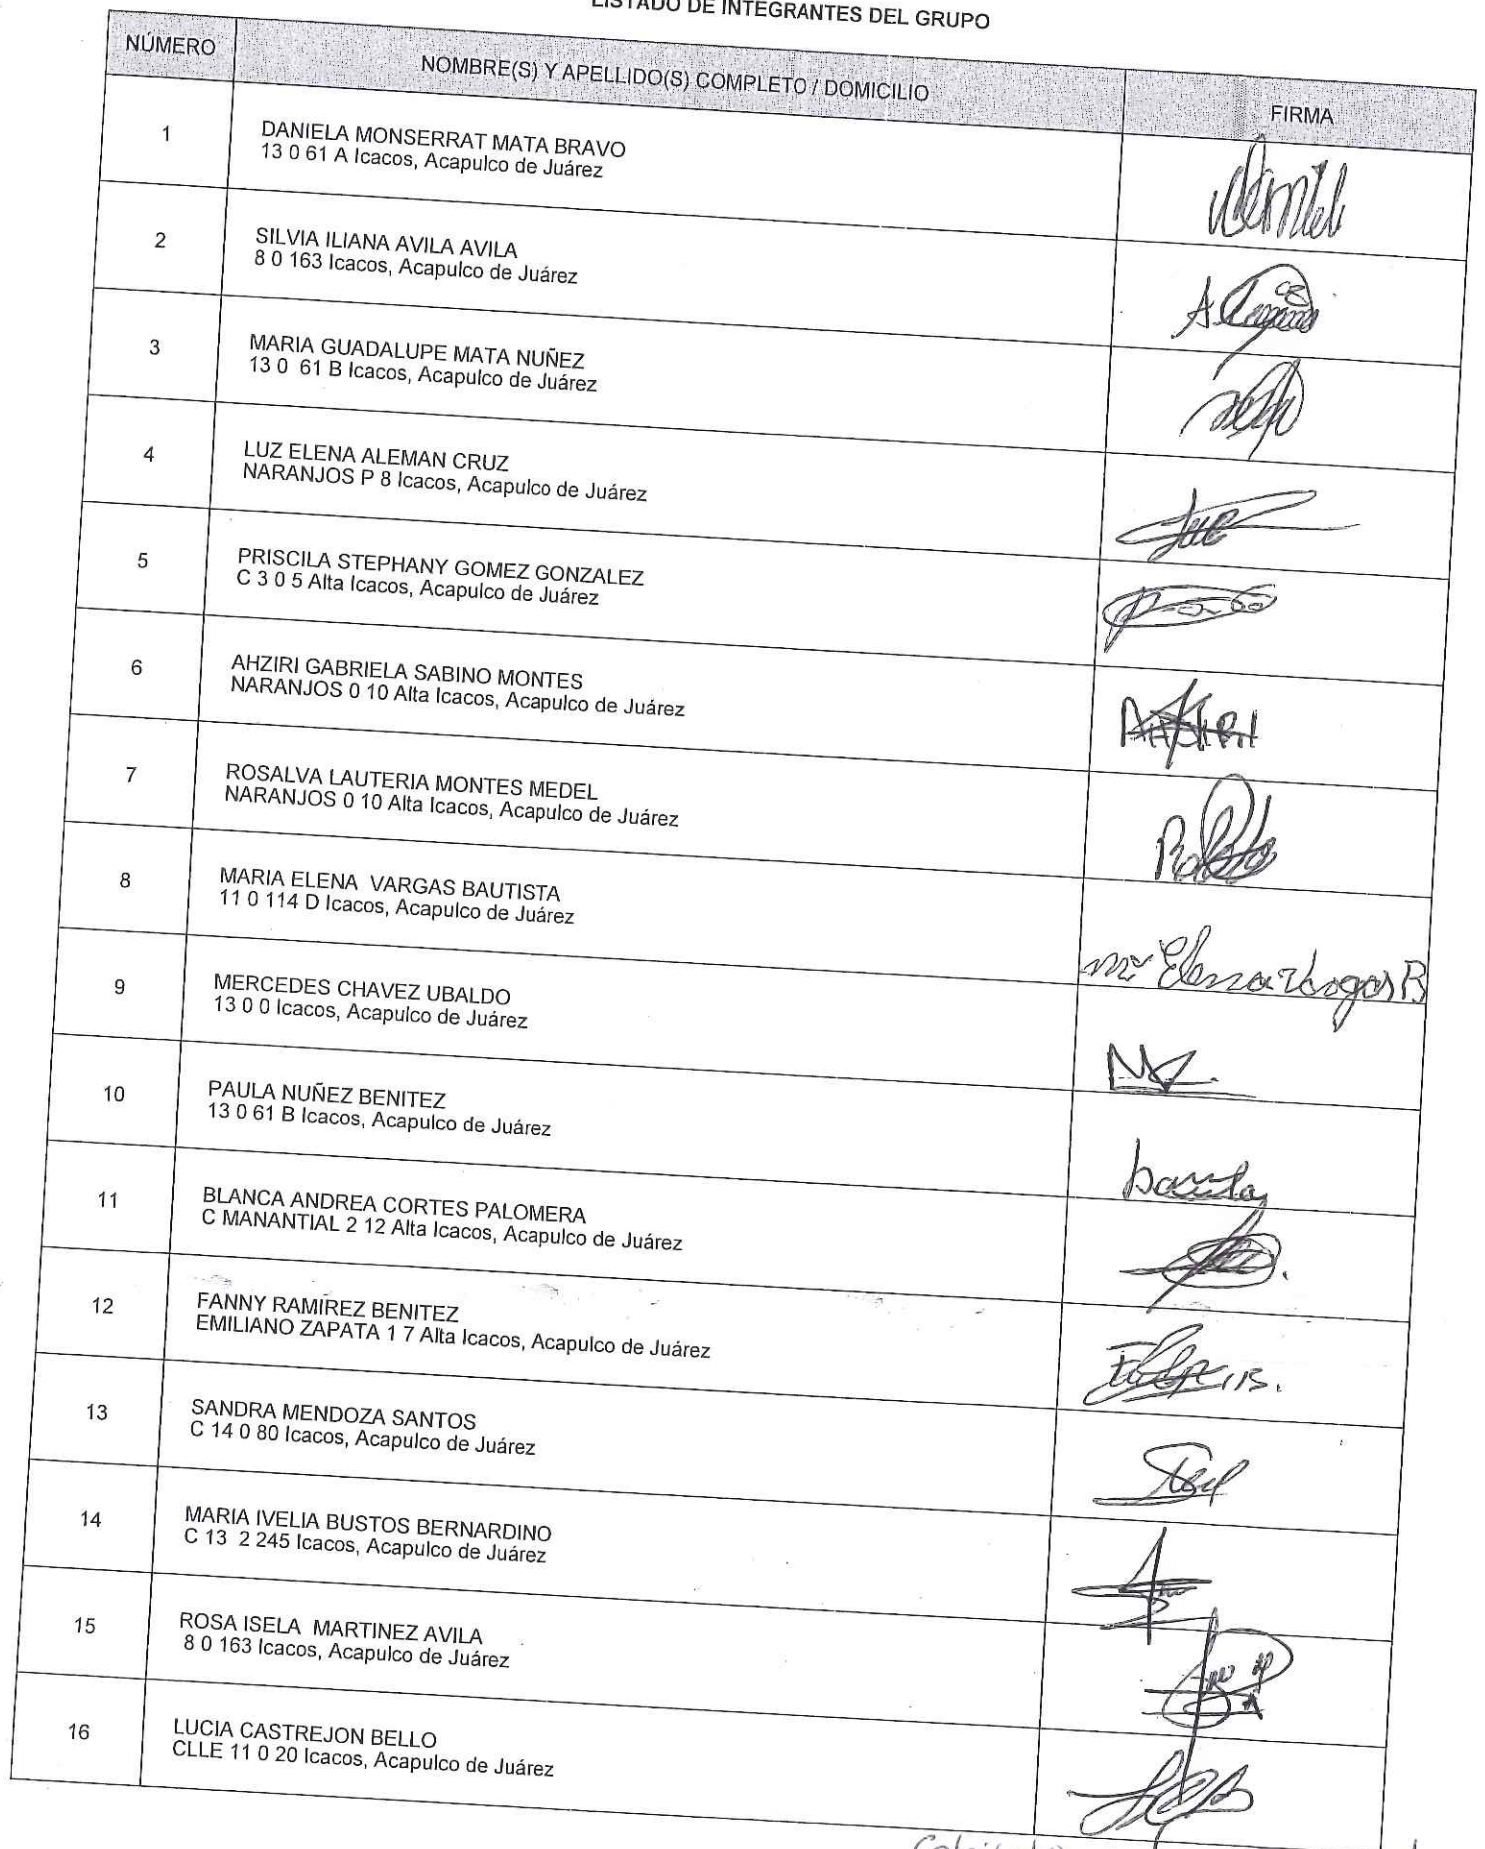 LISTADO DE INTEGRANTES DEL GRUPO
NÚMERO NOMBRE(S) Y APELLIDO(S) COMPLETO / DOMICILIO FIRMA
1 DANIELA MONSERRAT MATA BRAVO
13 0 61 A Icacos, Acapulco de Juárez
2 SILVIA ILIANA AVILA AVILA
8 0 163 Icacos, Acapulco de Juárez
3 MARIA GUADALUPE MATA NUÑEZ
13 0 61 B Icacos, Acapulco de Juárez
4 LUZ ELENA ALEMAN CRUZ
NARANJOS P 8 Icacos, Acapulco de Juárez
5 PRISCILA STEPHANY GOMEZ GONZALEZ
C 3 0 5 Alta Icacos, Acapulco de Juárez
6 AHZIRI GABRIELA SABINO MONTES
NARANJOS 0 10 Alta Icacos, Acapulco de Juárez
7 ROSALVA LAUTERIA MONTES MEDEL
NARANJOS 0 10 Alta Icacos, Acapulco de Juárez
8 MARIA ELENA VARGAS BAUTISTA
11 0 114 D Icacos, Acapulco de Juárez
Mª Elena Vargas B
9 MERCEDES CHAVEZ UBALDO
13 0 0 Icacos, Acapulco de Juárez
10 PAULA NUÑEZ BENITEZ
13 0 61 B Icacos, Acapulco de Juárez
Paula
11 BLANCA ANDREA CORTES PALOMERA
C MANANTIAL 2 12 Alta Icacos, Acapulco de Juárez
12 FANNY RAMIREZ BENITEZ
EMILIANO ZAPATA 1 7 Alta Icacos, Acapulco de Juárez
13 SANDRA MENDOZA SANTOS
C 14 0 80 Icacos, Acapulco de Juárez
14 MARIA IVELIA BUSTOS BERNARDINO
C 13 2 245 Icacos, Acapulco de Juárez
15 ROSA ISELA MARTINEZ AVILA
8 0 163 Icacos, Acapulco de Juárez
16 LUCIA CASTREJON BELLO
CLLE 11 0 20 Icacos, Acapulco de Juárez